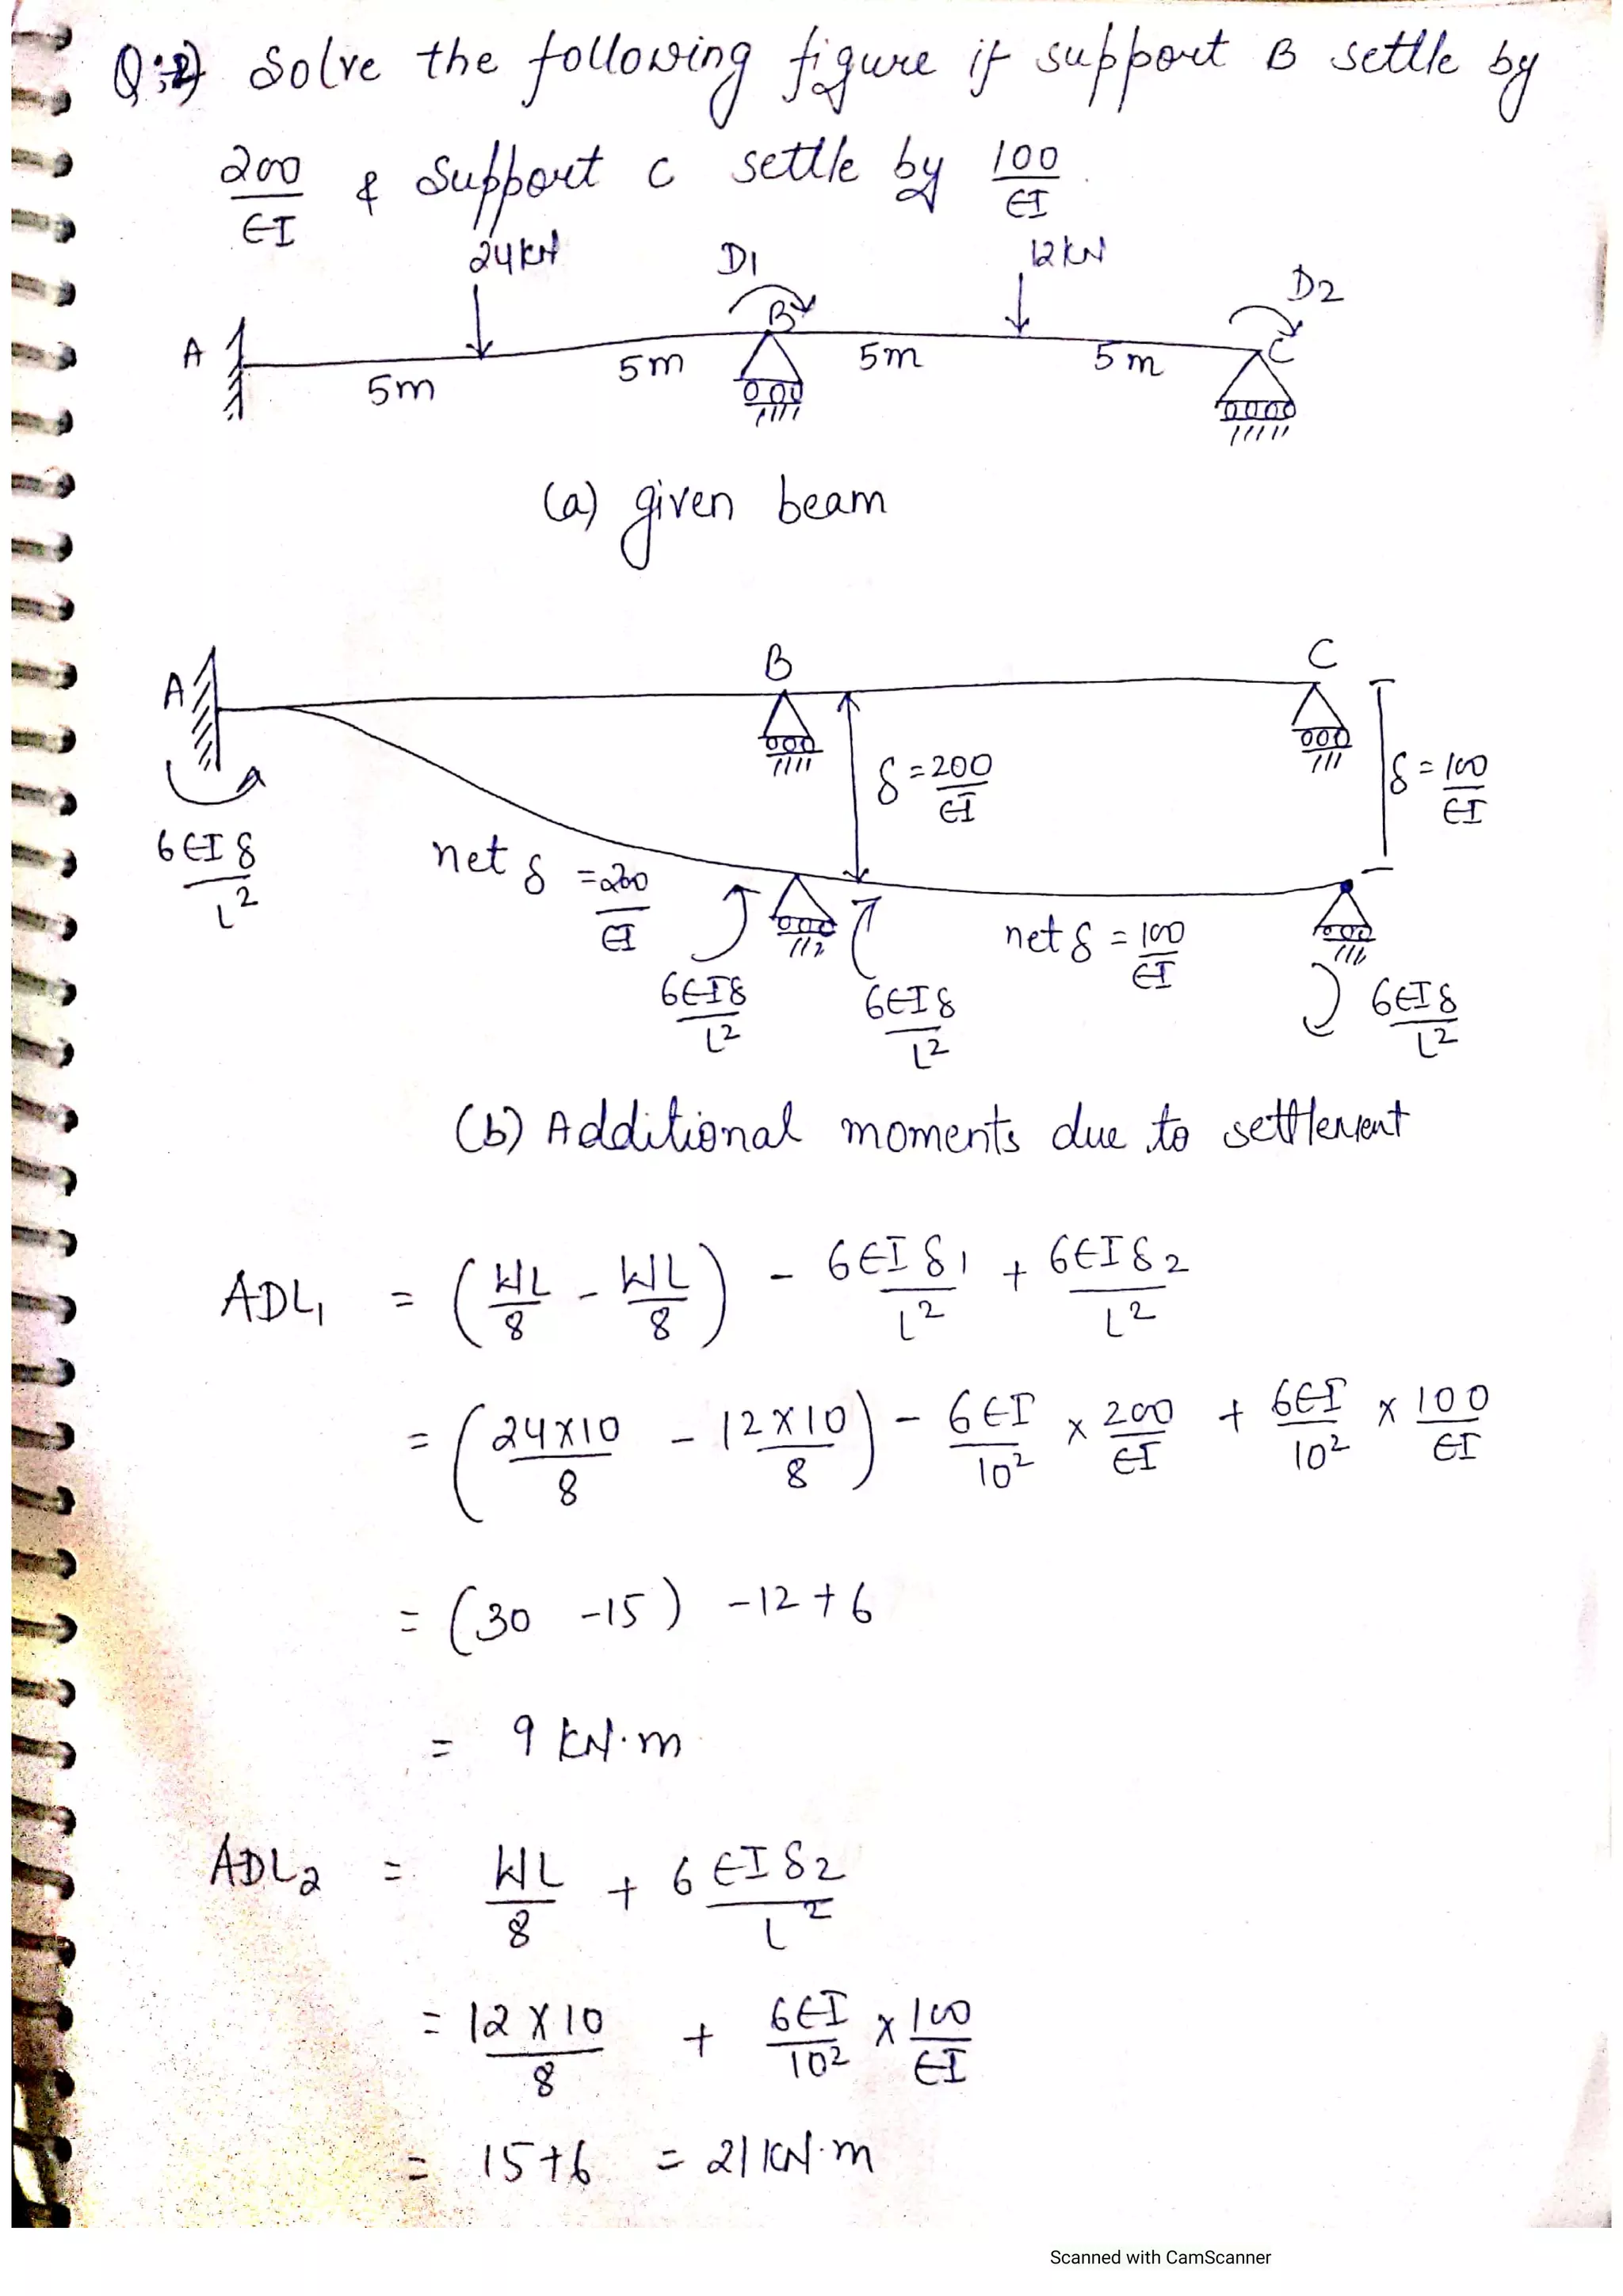 Q:2) Solve the following figure if support B settle by
200/EI & Support C settle by 100/EI.
24KN D1 12KN D2
A B C
5m 5m 5m 5m
(a) given beam
A B C
δ = 200/EI δ = 100/EI
6EIδ/L² net δ = 200/EI 6EIδ/L² 6EIδ/L² net δ = 100/EI 6EIδ/L²
(b) Additional moments due to settlement
ADL1 = (WL/8 - WL/8) - 6EIδ1/L² + 6EIδ2/L²
= (24x10/8 - 12x10/8) - 6EI/10² x 200/EI + 6EI/10² x 100/EI
= (30 -15) -12+6
= 9 KN.m
ADL2 = WL/8 + 6EIδ2/L²
= 12x10/8 + 6EI/10² x 100/EI
= 15+6 = 21 KN.m
Scanned with CamScanner